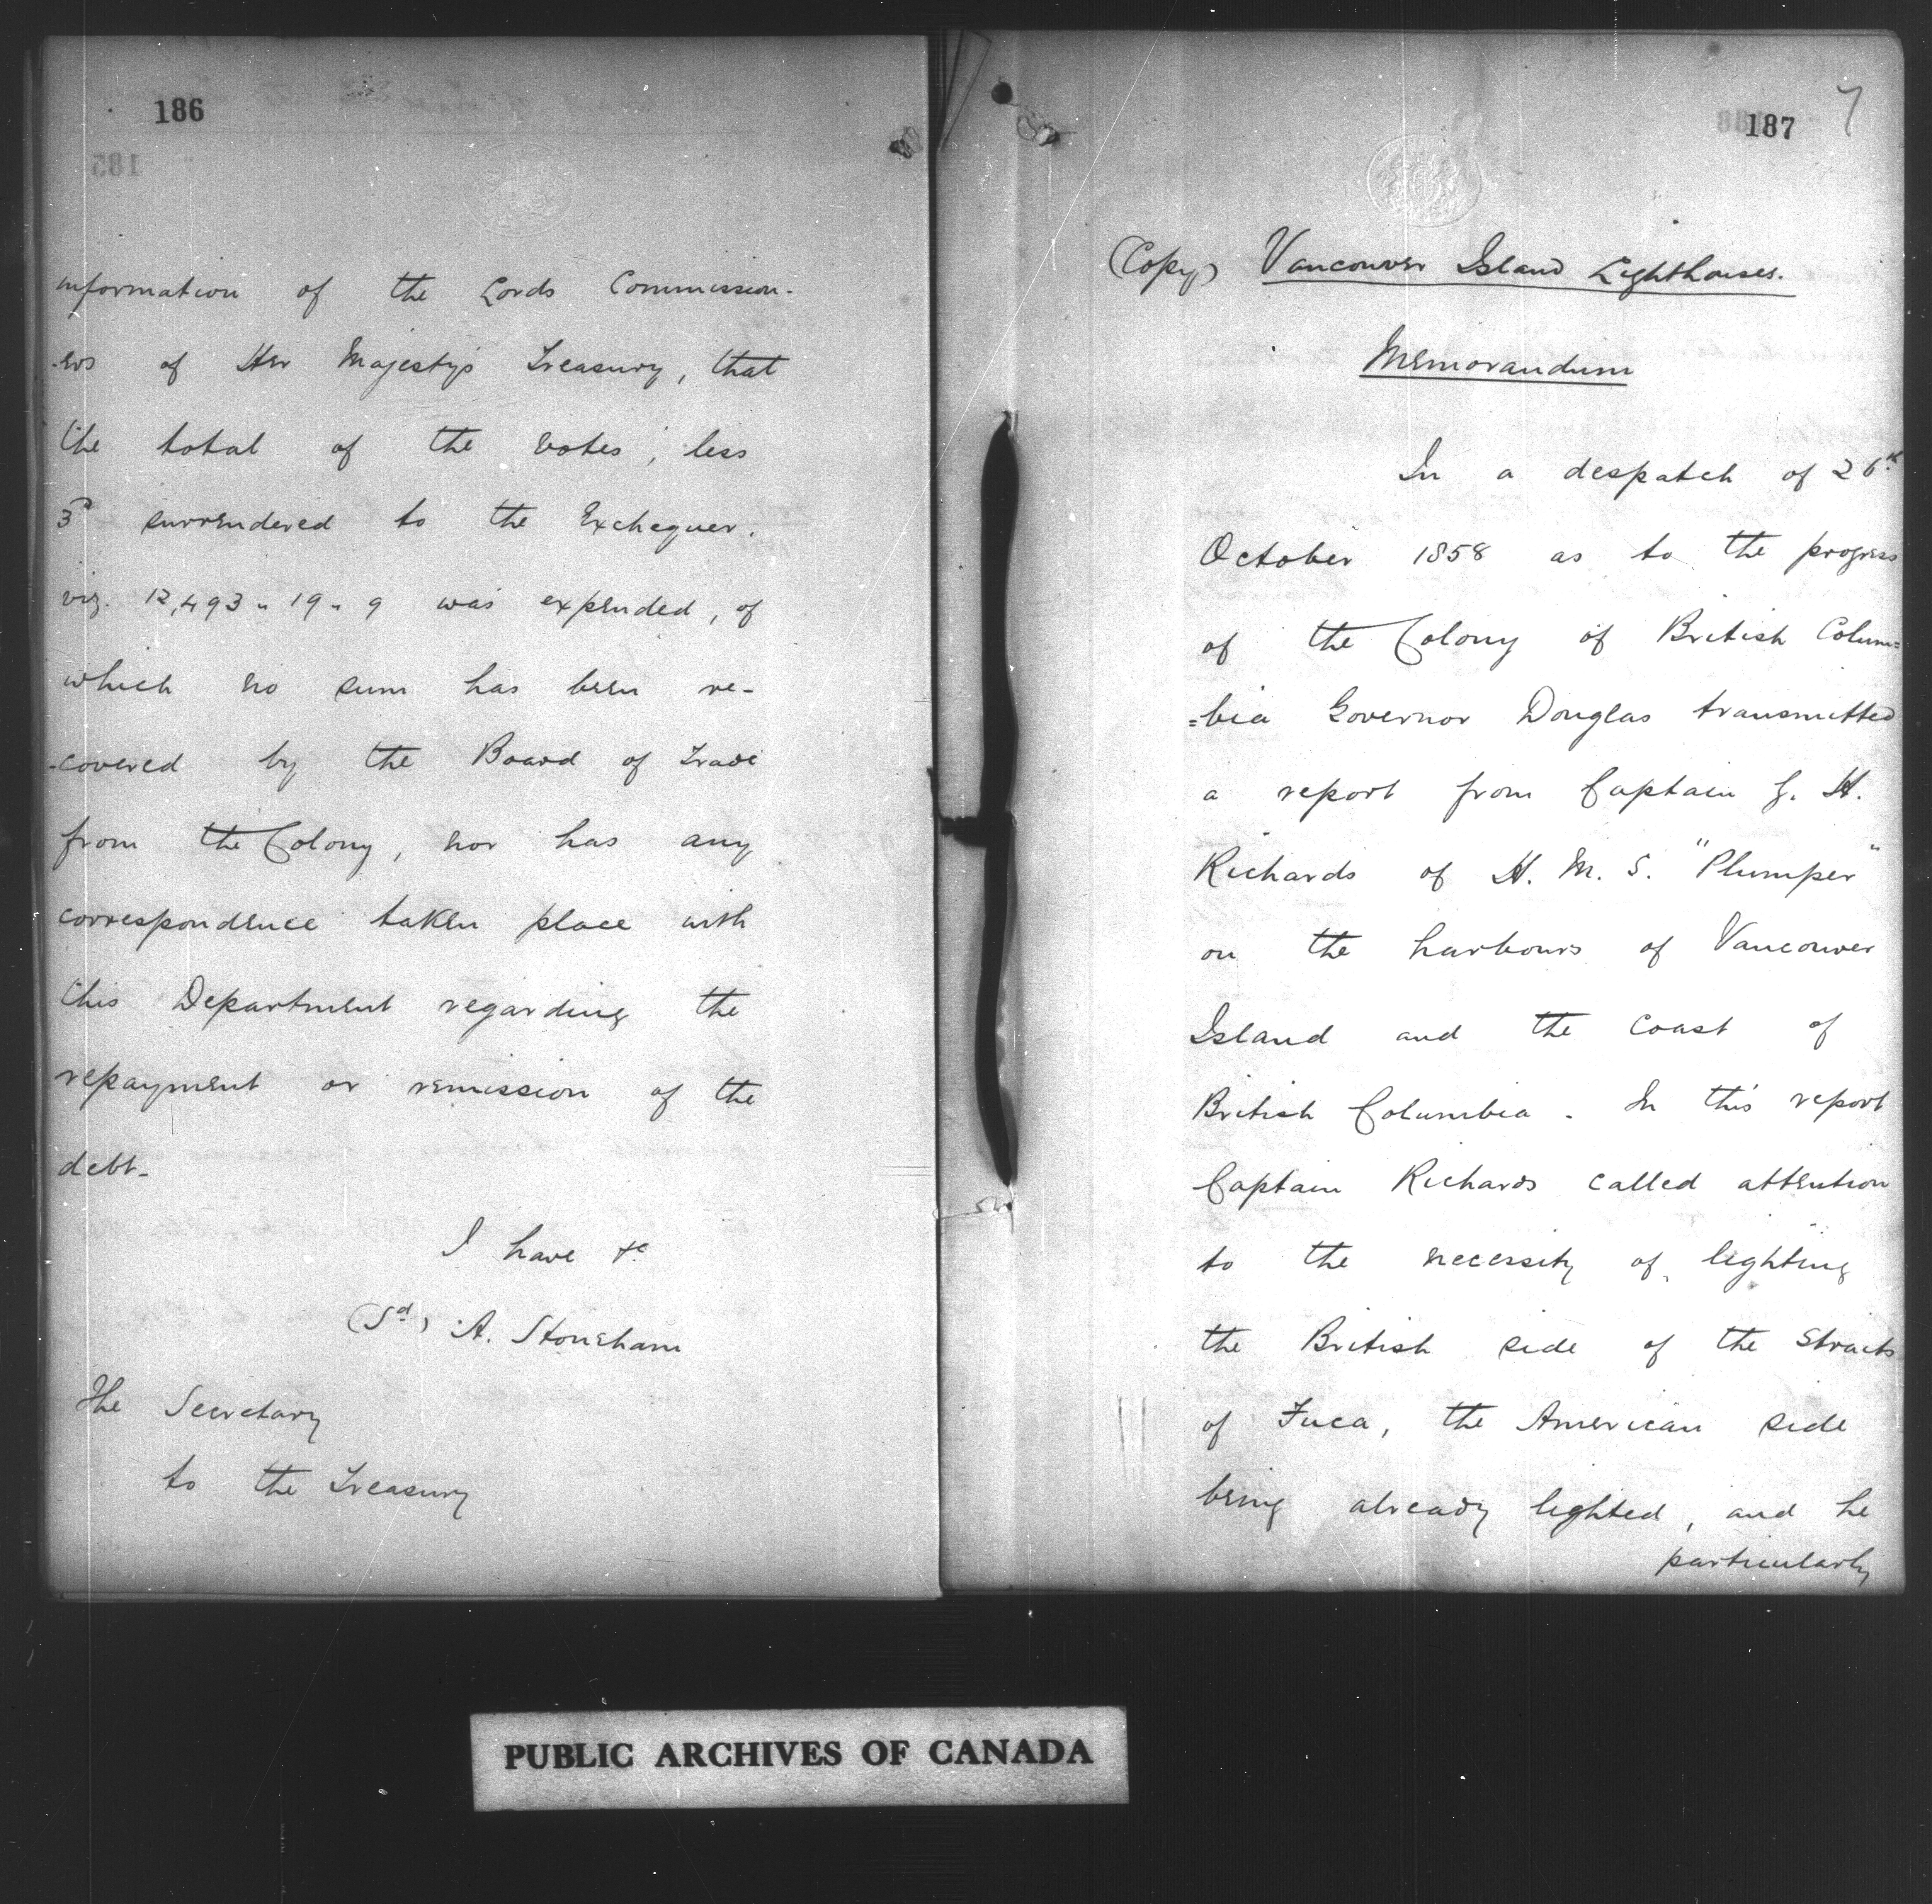 186
information of the Lords Commission-
-ers of Her Majesty's Treasury, that
the total of the votes, less
3d surrendered to the Exchequer.
viz. 12,493 " 19 " 9 was expended, of
which no sum has been re-
-covered by the Board of Trade
from the Colony, nor has any
correspondence taken place with
this Department regarding the
repayment or remission of the
debt-
I have &c
(Sd) A. Stoneham
The Secretary
to the Treasury
187
7
(Copy) Vancouver Island Lighthouses.
Memorandum
In a despatch of 26th
October 1858 as to the progress
of the Colony of British Colum=
=bia Governor Douglas transmitted
a report from Captain G. H.
Richards of H. M. S. "Plumper"
on the harbours of Vancouver
Island and the Coast of
British Columbia - In this report
Captain Richards called attention
to the necessity of lighting
the British side of the Straits
of Fuca, the American side
being already lighted, and he
particularly
PUBLIC ARCHIVES OF CANADA